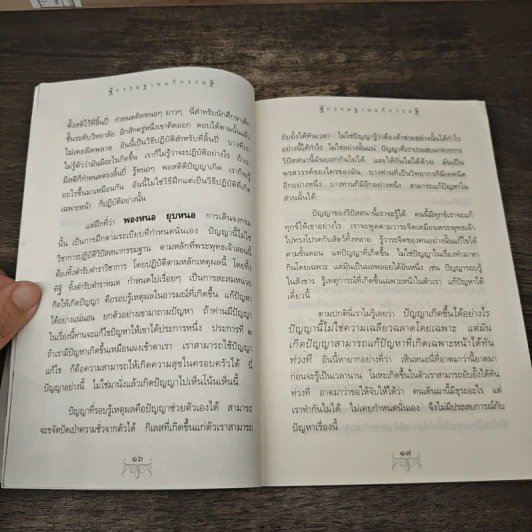 กรรมฐานแก้กรรม
ตั้งสติไว้ที่ลิ้นปี่ กำหนดคิดหนอๆ ยาวๆ นี่สำหรับนักศึกษาเด็ก
ชั้นระดับวิทยาลัย อีกสักครู่หนึ่งเขาคิดออก ตอบได้ตามนั้นแล้ว
ไม่เคยผิดพลาด อันนี้เป็นวิธีปฏิบัติสำหรับที่ลิ้นปี่ บางทีเรา
ไม่รู้ตัวว่ามันมีอะไรเกิดขึ้น เราก็ไม่รู้ว่าจะปฏิบัติอย่างไร ถ้าเรา
มีสติก็กำหนดตรงลิ้นปี่ รู้หนอๆ พอสติดีปัญญาเกิด เราก็รู้
อะไรขึ้นมาเหมือนกัน อันนี้ไม่ใช่วิธีฝึกแต่เป็นวิธีปฏิบัติที่เกิด
เฉพาะหน้า ก็ปฏิบัติอย่างนั้น
แต่ฝึกที่ว่า พองหนอ ยุบหนอ การเดินจงกรม
นั้น เป็นการฝึกตามระเบียบที่กำหนดนั่นเอง ปัญญานี้ไม่ใช่
วิชาการปฏิบัติวิปัสสนากรรมฐาน ตามหลักที่พระพุทธเจ้าสอนนี้
ต้องทิ้งตำรับตำราวิชาการ โดยปฏิบัติตามหลักหมด ให้ทิ้ง
ทิฐิ ทิ้งตำรับตำราหมด กำหนดไปเรื่อยๆ เป็นการสะสมหน่วย
กิตให้เกิดปัญญา คือรอบรู้เหตุผลในอารมณ์ที่เกิดขึ้น แก้ปัญหา
ได้อย่างแน่นอน ยกตัวอย่างเขาถามปัญหา ถ้าท่านมีปัญญา
ในเรื่องนี้ท่านจะแก้ไขปัญหาให้เขาได้ประการหนึ่ง ประการที่ ๒
ถ้าเรามีปัญหาเกิดขึ้นเหมือนผงเข้าตาเรา เราสามารถใช้ปัญญา
แก้ไข ก็คือความสามารถให้เกิดความสุขในครอบครัวได้ นี่
ปัญญาอย่างนี้ ไม่ใช่มานั่งแล้วเกิดปัญญาไปเห็นโน่นเห็นนี่
ปัญญาที่รอบรู้เหตุผลคือปัญญาช่วยตัวเองได้ สามารถ
จะขจัดปัดเป่าความชั่วจากตัวได้ กิเลสที่เกิดขึ้นแก่ตัวเราสามารถ
๑๖
กรรมฐานแก้กรรม
ยับยั้งได้ทันเวลา ไม่ใช่ปัญญารู้ว่าต้องค้าขายอย่างนั้นได้กำไร
อย่างนี้ได้กำไร ไม่ใช่อย่างนั้นแน่ ปัญญาที่เราประสบมาจากการ
วิปัสสนานี้มันบอกกันไม่ได้ และให้กันไม่ได้ด้วย มันเป็น
พรสวรรค์ของใครของมัน บางท่านที่เป็นวิทยากรก็มีเทคนิค
อีกอย่างหนึ่ง บางท่านก็มีอีกอย่างหนึ่ง สามารถแก้ปัญหาใน
ส่วนนั้นได้
ปัญญาของวิปัสสนานี้เราจะรู้ได้ คนนี้มีทุกข์เราจะแก้
ทุกข์ให้เขาอย่างนี้ เราจะพูดตามวาระจิตเหมือนพระพุทธเจ้า
ไปทรงโปรดกับสัตว์ทั้งหลาย รู้วาระจิตของคนอย่างนี้แก้ไขได้
ตามขั้นตอน แต่ปัญญาที่เกิดขึ้น ไม่ใช่ปัญญาในเรื่องทำมาหา
กินโดยเฉพาะ แต่มันเป็นผลพลอยได้อันหนึ่ง เช่น ปัญญารอบรู้
ในสังขาร รู้เหตุการณ์ที่เกิดขึ้นเฉพาะหน้าในตัวเรา แก้ปัญหาได้
เดี๋ยวนี้
ตามปกตินี่เราไม่รู้เลยว่า ปัญญาเกิดขึ้นได้อย่างไร
ปัญญานี้ไม่ใช่ความเฉลียวฉลาดโดยเฉพาะ แต่มัน
เกิดปัญญาสามารถแก้ปัญหาที่เกิดเฉพาะหน้าได้ทัน
ท่วงที อันนี้หายากอย่างที่ว่า เห็นหนอนี่ที่อาตมาว่านี้อาตมา
ก่อนจะรู้นี้เป็นเวลานาน โมหะเกิดขึ้นในตัวเราสามารถยับยั้งได้ทัน
ท่วงที อาตมาว่าขอให้จับให้ได้ว่า คนเดินมานี้มีธุระอะไร แต่
เราทำกันไม่ได้ ไม่เคยกำหนดนั่นเอง จึงไม่มีประสบการณ์กับ
ปัญหาเรื่องนี้
๑๗